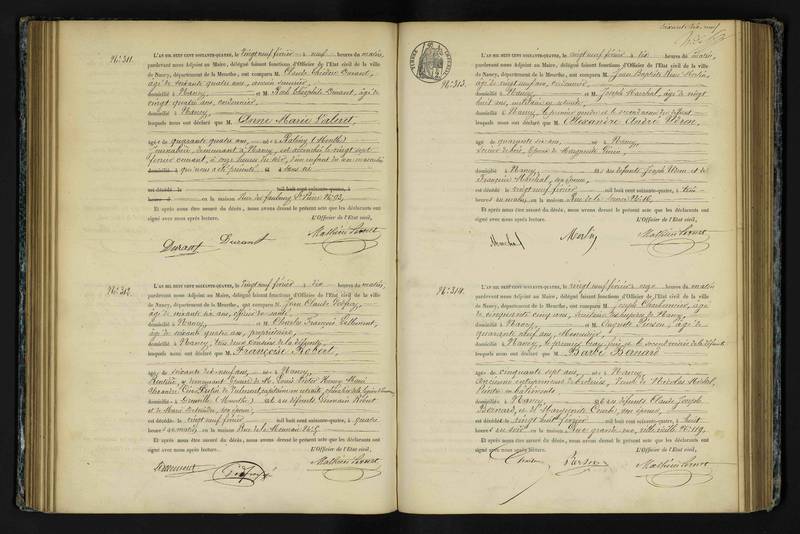 N.º 311.
L'AN MIL HUIT CENT SOIXANTE-QUATRE, le vingt neuf février à neuf heures du matin,
pardevant nous Adjoint au Maire, délégué faisant fonctions d'Officier de l'Etat civil de la ville
de Nancy, département de la Meurthe, ont comparu M. Claude Isidore Durant,
âgé de soixante quatre ans,
domicilié à Nancy et M. Théophile Durant, âgé de
vingt quatre ans, cordonnier,
domicilié à Nancy,
lesquels nous ont déclaré que M. Anne Marie Valeret
âgée de quarante quatre ans, née à (Meurthe)
journalière, demeurant à Nancy, est accouchée le vingt sept
février courant, à onze heures du soir, d'un enfant du sexe masculin
domicilié à qui nous a été présenté sans vie
est décédé le mil huit cent soixante-quatre, à
heures en la maison Rue du faubourg St Pierre N.º 93,
Et après nous être assuré du décès, nous avons dressé le présent acte que les déclarants ont
signé avec nous après lecture. L'Officier de l'Etat civil,
Durant Durant Mathieu
N.º 312.
L'AN MIL HUIT CENT SOIXANTE-QUATRE, le vingt neuf février à dix heures du matin,
pardevant nous Adjoint au Maire, délégué faisant fonctions d'Officier de l'Etat civil de la ville
de Nancy, département de la Meurthe, ont comparu M. Jean Claude
âgé de soixante six ans, officier de santé,
domicilié à Nancy et M. Charles François
âgé de soixante quatre ans, propriétaire,
domicilié à Nancy, tous deux cousins de la défunte,
lesquels nous ont déclaré que M. Françoise Robert,
âgée de soixante dix neuf ans, née à Nancy,
Rentière, y demeurant, de M. Louis Victor
Alexandre capitaine en retraite, chevalier de la Légion d'honneur
domicilié à (Meurthe) et au défunts Germain Robert
et de Marie son épouse,
est décédée le vingt neuf février mil huit cent soixante-quatre, à quatre
heures du matin en la maison Rue de la Monnaie N.º 5,
Et après nous être assuré du décès, nous avons dressé le présent acte que les déclarants ont
signé avec nous après lecture. L'Officier de l'Etat civil,
Mathieu
soixante dix neuf
N.º 313.
L'AN MIL HUIT CENT SOIXANTE-QUATRE, le vingt neuf février à dix heures du matin,
pardevant nous Adjoint au Maire, délégué faisant fonctions d'Officier de l'Etat civil de la ville
de Nancy, département de la Meurthe, ont comparu M. Jean Baptiste Morlin,
âgé de vingt neuf ans, cordonnier,
domicilié à Nancy et M. Joseph Marchal, âgé de vingt
huit ans, militaire en retraite,
domicilié à Nancy, le premier gendre et le second neveu du défunt
lesquels nous ont déclaré que M. Alexandre André
âgé de quarante six ans, né à Nancy,
époux de Marguerite
domicilié à Nancy, et au défunts Joseph et de
Françoise Marchal, son épouse,
est décédé le vingt neuf février mil huit cent soixante-quatre, à trois
heures du matin, en la maison Rue de la N.º 16,
Et après nous être assuré du décès, nous avons dressé le présent acte que les déclarants ont
signé avec nous après lecture. L'Officier de l'Etat civil,
Marchal Morlin Mathieu
N.º 314.
L'AN MIL HUIT CENT SOIXANTE-QUATRE, le vingt neuf février à onze heures du matin
pardevant nous Adjoint au Maire, délégué faisant fonctions d'Officier de l'Etat civil de la ville
de Nancy, département de la Meurthe, ont comparu M. Joseph
âgé de cinquante cinq ans, de Nancy,
domicilié à Nancy et M. Auguste Pierson, âgé de
quarante neuf ans, Menuisier,
domicilié à Nancy, le premier beau frère et le second de la défunte
lesquels nous ont déclaré que M. Barbe Bernard
âgée de cinquante sept ans, née à Nancy,
ancienne entrepreneur de broderies, Veuve de Nicolas
Peintre en bâtiments
domicilié à Nancy, et au défunts Claude Joseph
Bernard, et de Marguerite son épouse,
est décédée le vingt huit février mil huit cent soixante-quatre, à huit
heures du soir, en la maison Rue grande rue, ville vieille N.º 119,
Et après nous être assuré du décès, nous avons dressé le présent acte que les déclarants ont
signé avec nous après lecture. L'Officier de l'Etat civil,
Pierson Mathieu